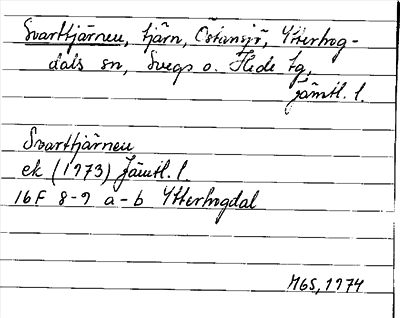 Svarttjärnen, tjärn, Östansjö, Ytterhog-
dals sn, Svegs o. Hede tg,
Jämtl. l.
Svarttjärnen
ek (1973) Jämtl. l.
16F 8-9 a-b Ytterhogdal
MGS, 1974